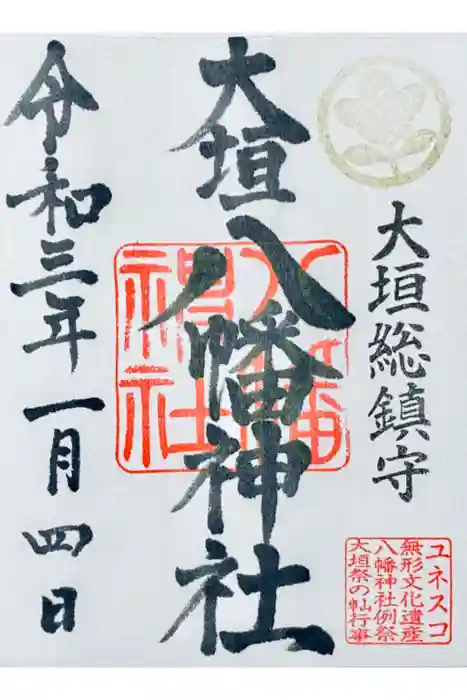 大垣総鎮守
ユネスコ
無形文化遺産
八幡神社例祭
大垣祭の軕行事
大垣八幡神社
八幡
神社
令和三年一月四日